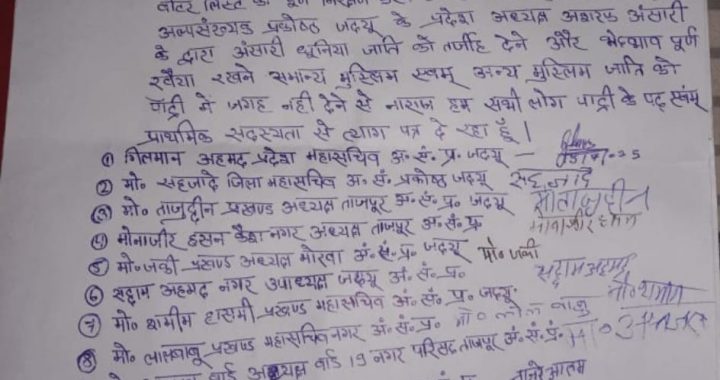 वोटर लिस्ट का पूर्ण निरीक्षण
अल्पसंख्यक प्रकोष्ठ जदयू के प्रदेश अध्यक्ष अशरफ अंसारी
के द्वारा अंसारी धूनिया जाति को तर्जीह देने और भेदभाव पूर्ण
रवैया रखने समान्य मुस्लिम स्वम् अन्य मुस्लिम जाति को
पार्टी में जगह नही देने से नाराज हम सभी लोग पार्टी के पद स्वंम्
प्राथमिक सदस्यता से त्याग पत्र दे रहा हूँ।
① गिलमान अहमद प्रदेश महासचिव अ. सं. प्र. जदयू —
② मो० सहजादे जिला महासचिव अ. सं. प्रकोष्ठ जदयू सहजादे
③ मो० ताजुद्दीन प्रखण्ड अध्यक्ष ताजपुर अ. सं. प्र. जदयू
④ मोनाजीर हसन नगर अध्यक्ष ताजपुर अ. सं. प्र मोनाजीर हसन
⑤ मो० जकी प्रखण्ड अध्यक्ष मोरवा अं. सं. प्र. जदयू मो० जकी
⑥ सद्दाम अहमद नगर उपाध्यक्ष जदयू अं. सं. प्र. सद्दाम अहमद
⑦ मो० शामीम हासमी प्रखण्ड महासचिव अं. सं. प्र. जदयू मो० शमीम
⑧ मो० लालबाबू प्रखण्ड महासचिव नगर अं. सं. प्र. मो० लाल बाबु
वार्ड अध्यक्ष वार्ड 19 नगर परिसद ताजपुर अं. सं. प्रं.